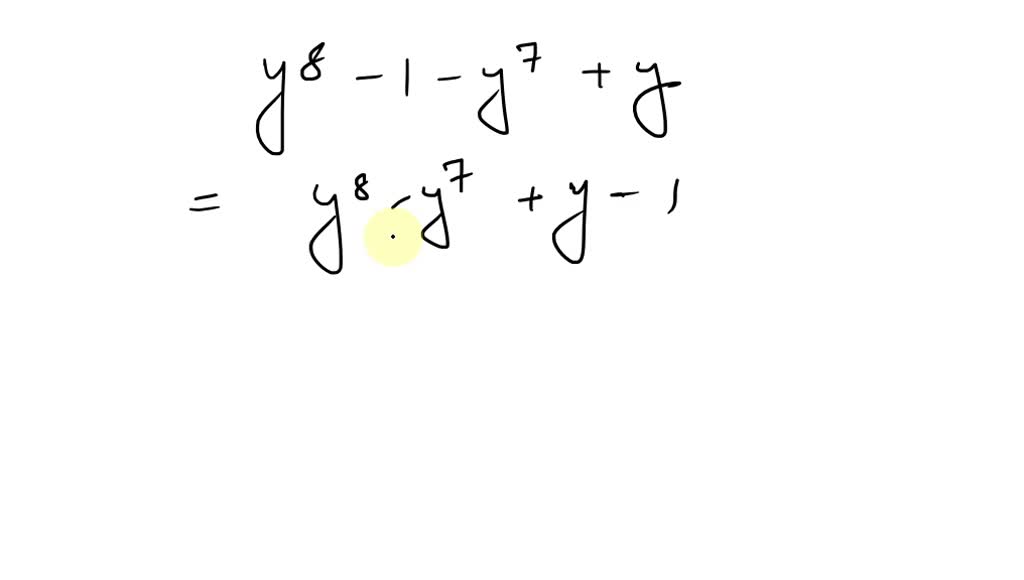 y⁸ - 1 - y⁷ + y
= y⁸ - y⁷ + y - 1